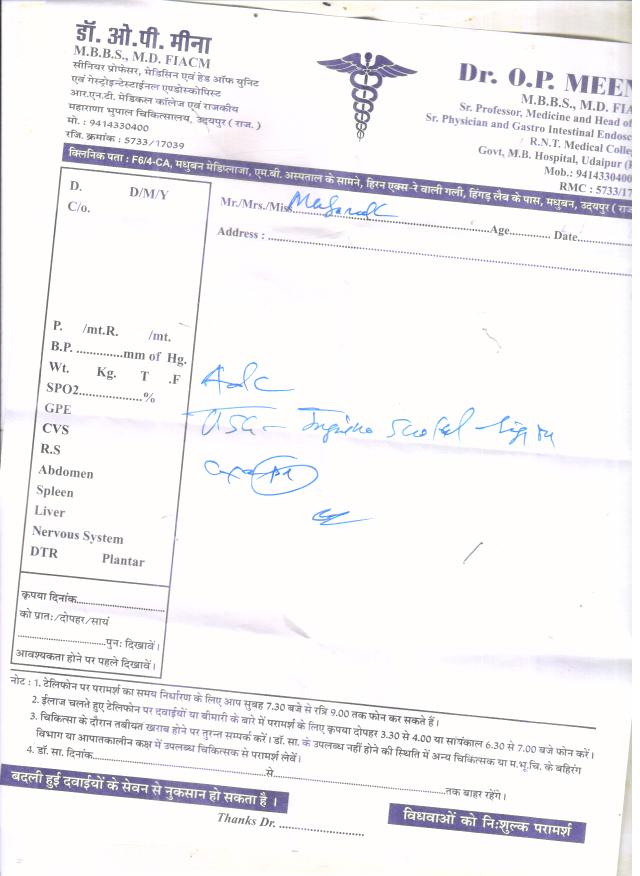 डॉ. ओ.पी. मीना
M.B.B.S., M.D. FIACM
सीनियर प्रोफेसर, मेडिसिन एवं हेड ऑफ युनिट
एवं गेस्ट्रोइन्टेस्टाईनल एण्डोस्कोपिस्ट
आर.एन.टी. मेडिकल कॉलेज एवं राजकीय
महाराणा भुपाल चिकित्सालय, उदयपुर ( राज. )
मो. : 9414330400
रजि. क्रमांक : 5733/17039
Dr. O.P. MEEN
M.B.B.S., M.D. FIA
Sr. Professor, Medicine and Head of
Sr. Physician and Gastro Intestinal Endosc
R.N.T. Medical Colle
Govt, M.B. Hospital, Udaipur (R
Mob.: 9414330400
RMC : 5733/17
क्लिनिक पता : F6/4-CA, मधुबन मेडिप्लाजा, एम.बी. अस्पताल के सामने, हिरन एक्स-रे वाली गली, हिंगड़ लैब के पास, मधुबन, उदयपुर ( राज
D. D/M/Y
C/o.
Mr./Mrs./Miss. Age. Date.
Address :
P. /mt.R. /mt.
B.P. mm of Hg.
Wt. Kg. T .F
SPO2. %
GPE
CVS
R.S
Abdomen
Spleen
Liver
Nervous System
DTR Plantar
USG -
कृपया दिनांक
को प्रातः/दोपहर/सायं
पुनः दिखावें।
आवश्यकता होने पर पहले दिखावें।
नोट : 1. टेलिफोन पर परामर्श का समय निर्धारण के लिए आप सुबह 7.30 बजे से रात्रि 9.00 तक फोन कर सकते हैं।
2. ईलाज चलते हुए टेलिफोन पर दवाईयों या बीमारी के बारे में परामर्श के लिए कृपया दोपहर 3.30 से 4.00 या सांयकाल 6.30 से 7.00 बजे फोन करें।
3. चिकित्सा के दौरान तबीयत खराब होने पर तुरन्त सम्पर्क करें। डॉ. सा. के उपलब्ध नहीं होने की स्थिति में अन्य चिकित्सक या म.भू.चि. के बहिरंग
विभाग या आपातकालीन कक्ष में उपलब्ध चिकित्सक से परामर्श लेवें।
4. डॉ. सा. दिनांक से तक बाहर रहेंगे।
बदली हुई दवाईयों के सेवन से नुकसान हो सकता है।
Thanks Dr.
विधवाओं को नि:शुल्क परामर्श